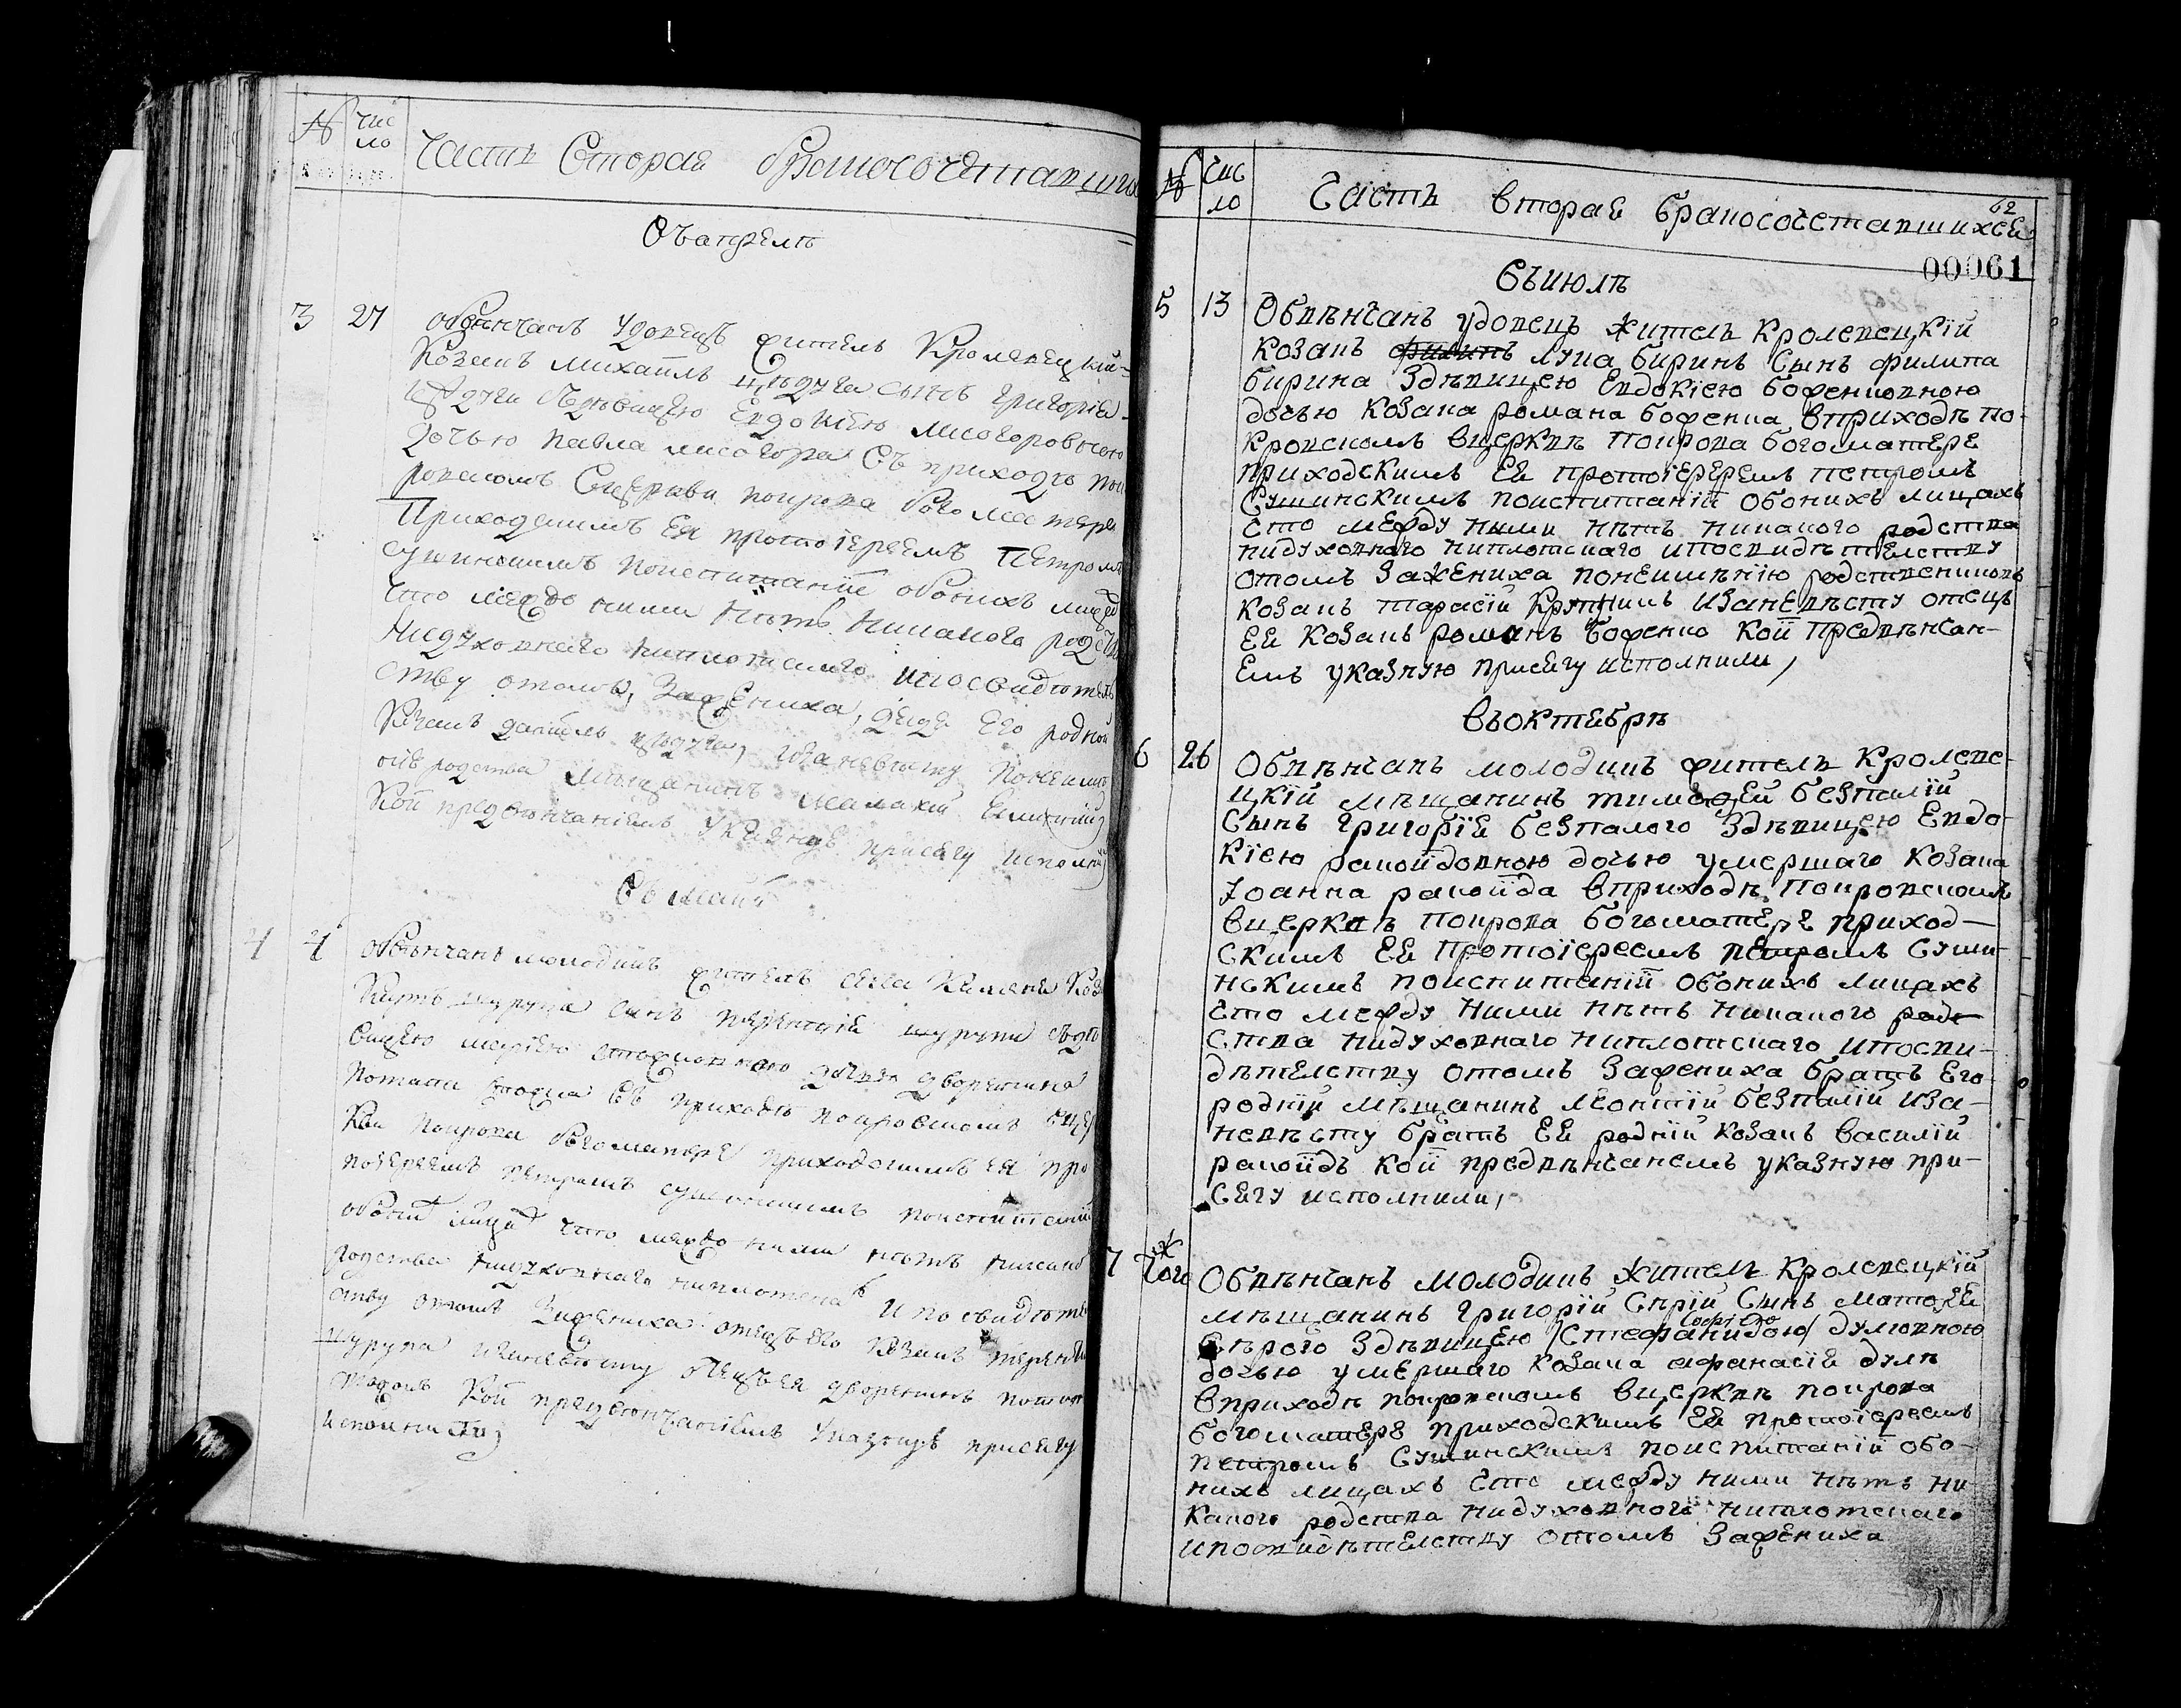 № Чис
ло
Часть Вторая бракосочетавшихся
Въ апрелѣ
3 27 обвѣнчанъ удовецъ житель Кролевецкий
Козакъ михаилъ сынъ григория
Здѣвицею Евдокиею лисогоровною
дочью павла лисогора въ приходѣ пок
ровскомъ Вцеркви покрова богоматере
Приходскимъ Ея протоіереемъ Петромъ
сушинскимъ поиспитаніи обоихъ лицъ
что между ними нѣтъ никакого родст
Нидуховнаго ниплотскаго ипосвидѣтель
ству отомъ, Зажениха, дядя Его родной
Козакъ данило изаневѣсту понеимѣ
родства Мѣщанинъ
Кои предвѣнчаніемъ Указную присягу исполни
Въ маии
4 4 обвѣнчанъ молодикъ житель села Козак
шурупа синъ терентия шурупи Здѣ
вицею мариею дочью дворянина
потапа Въ приходѣ покровскомъ вцер
кви покрова богоматере приходскимъ ея про
тоіереемъ петромъ сушинскимъ поиспитаніи
обоихъ лицъ что между ними нѣтъ никако
родства нидуховнаго ниплотска И посвидѣтел
ству отомъ Зажениха отецъ его козакъ терентий
шурупа изаневѣсту отецъ ея дворянинъ потапъ
Кои предвѣнчаніемъ Указную присягу
исполнили,
№ Чис
ло
Часть вторая бракосочетавшихся
62
00061
Въ июлѣ
5 13 Обвѣнчанъ удовецъ житель Кролевецкій
козакъ лупа биринъ Сынъ филипа
бирина Здѣвицею Евдокіею бофенковною
дочью козака романа бофенка вприходѣ по-
кровскомъ вцерквѣ покрова богоматере
приходскимъ Ея протоіереремъ петромъ
Сушинскимъ поиспитаніи обоихъ лицахъ
Что между ними нѣтъ никакого родства
нидуховнаго ниплотскаго ипосвидѣтелству
отомъ Зажениха понеимѣнію родственниковъ
козакъ тарасій изаневѣсту отецъ
Ея козакъ романъ бофенко кои предвѣнчан-
емъ указную присягу исполнили,
въоктебрѣ
6 26 Обвѣнчанъ молодикъ жителъ Кролеве-
цкій мѣщанинъ тимофей безпалій
Сынъ григорія безпалого Здѣвицею Евдо-
кіею ракоидовною дочью умершаго козака
Іоанна ракоида вприходѣ покровскомъ
вцерквѣ покрова богоматере приход-
скимъ Ея Протоіереемъ петромъ Суши-
нскимъ поиспитаніи обоихъ лицахъ
что между ними нѣтъ никакого родс
ства нидуховнаго ниплотскаго ипосви-
дѣтелству отомъ Зажениха братъ Его
родній мѣщанинъ леонтій безпалій иза-
невѣсту братъ Ея родній козакъ василій
ракоидъ кои предвѣнчанемъ указную при-
сягу исполнили,
7 тогож Обвѣнчанъ молодикъ житель кролевецкій
мѣщанинъ григорій Сѣрій Сынъ матфея
Сѣрого Здѣвицею /Стефанидою/ Софіею думовною
дочью умершаго козака афанасія думѣ
вприходѣ покровскомъ вцерквѣ покрова
богоматере приходскимъ Ея протоіереемъ
петромъ Сушинскимъ поиспитаніи обо-
ихъ лицахъ Что между ними нѣтъ ни
какого родства нидуховного ниплотскаго
ипосвидѣтелству отомъ Зажениха